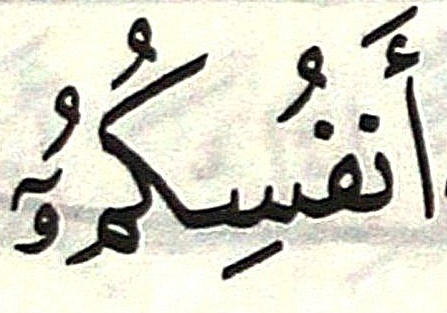 أَنفُسِكُمُۥٓ